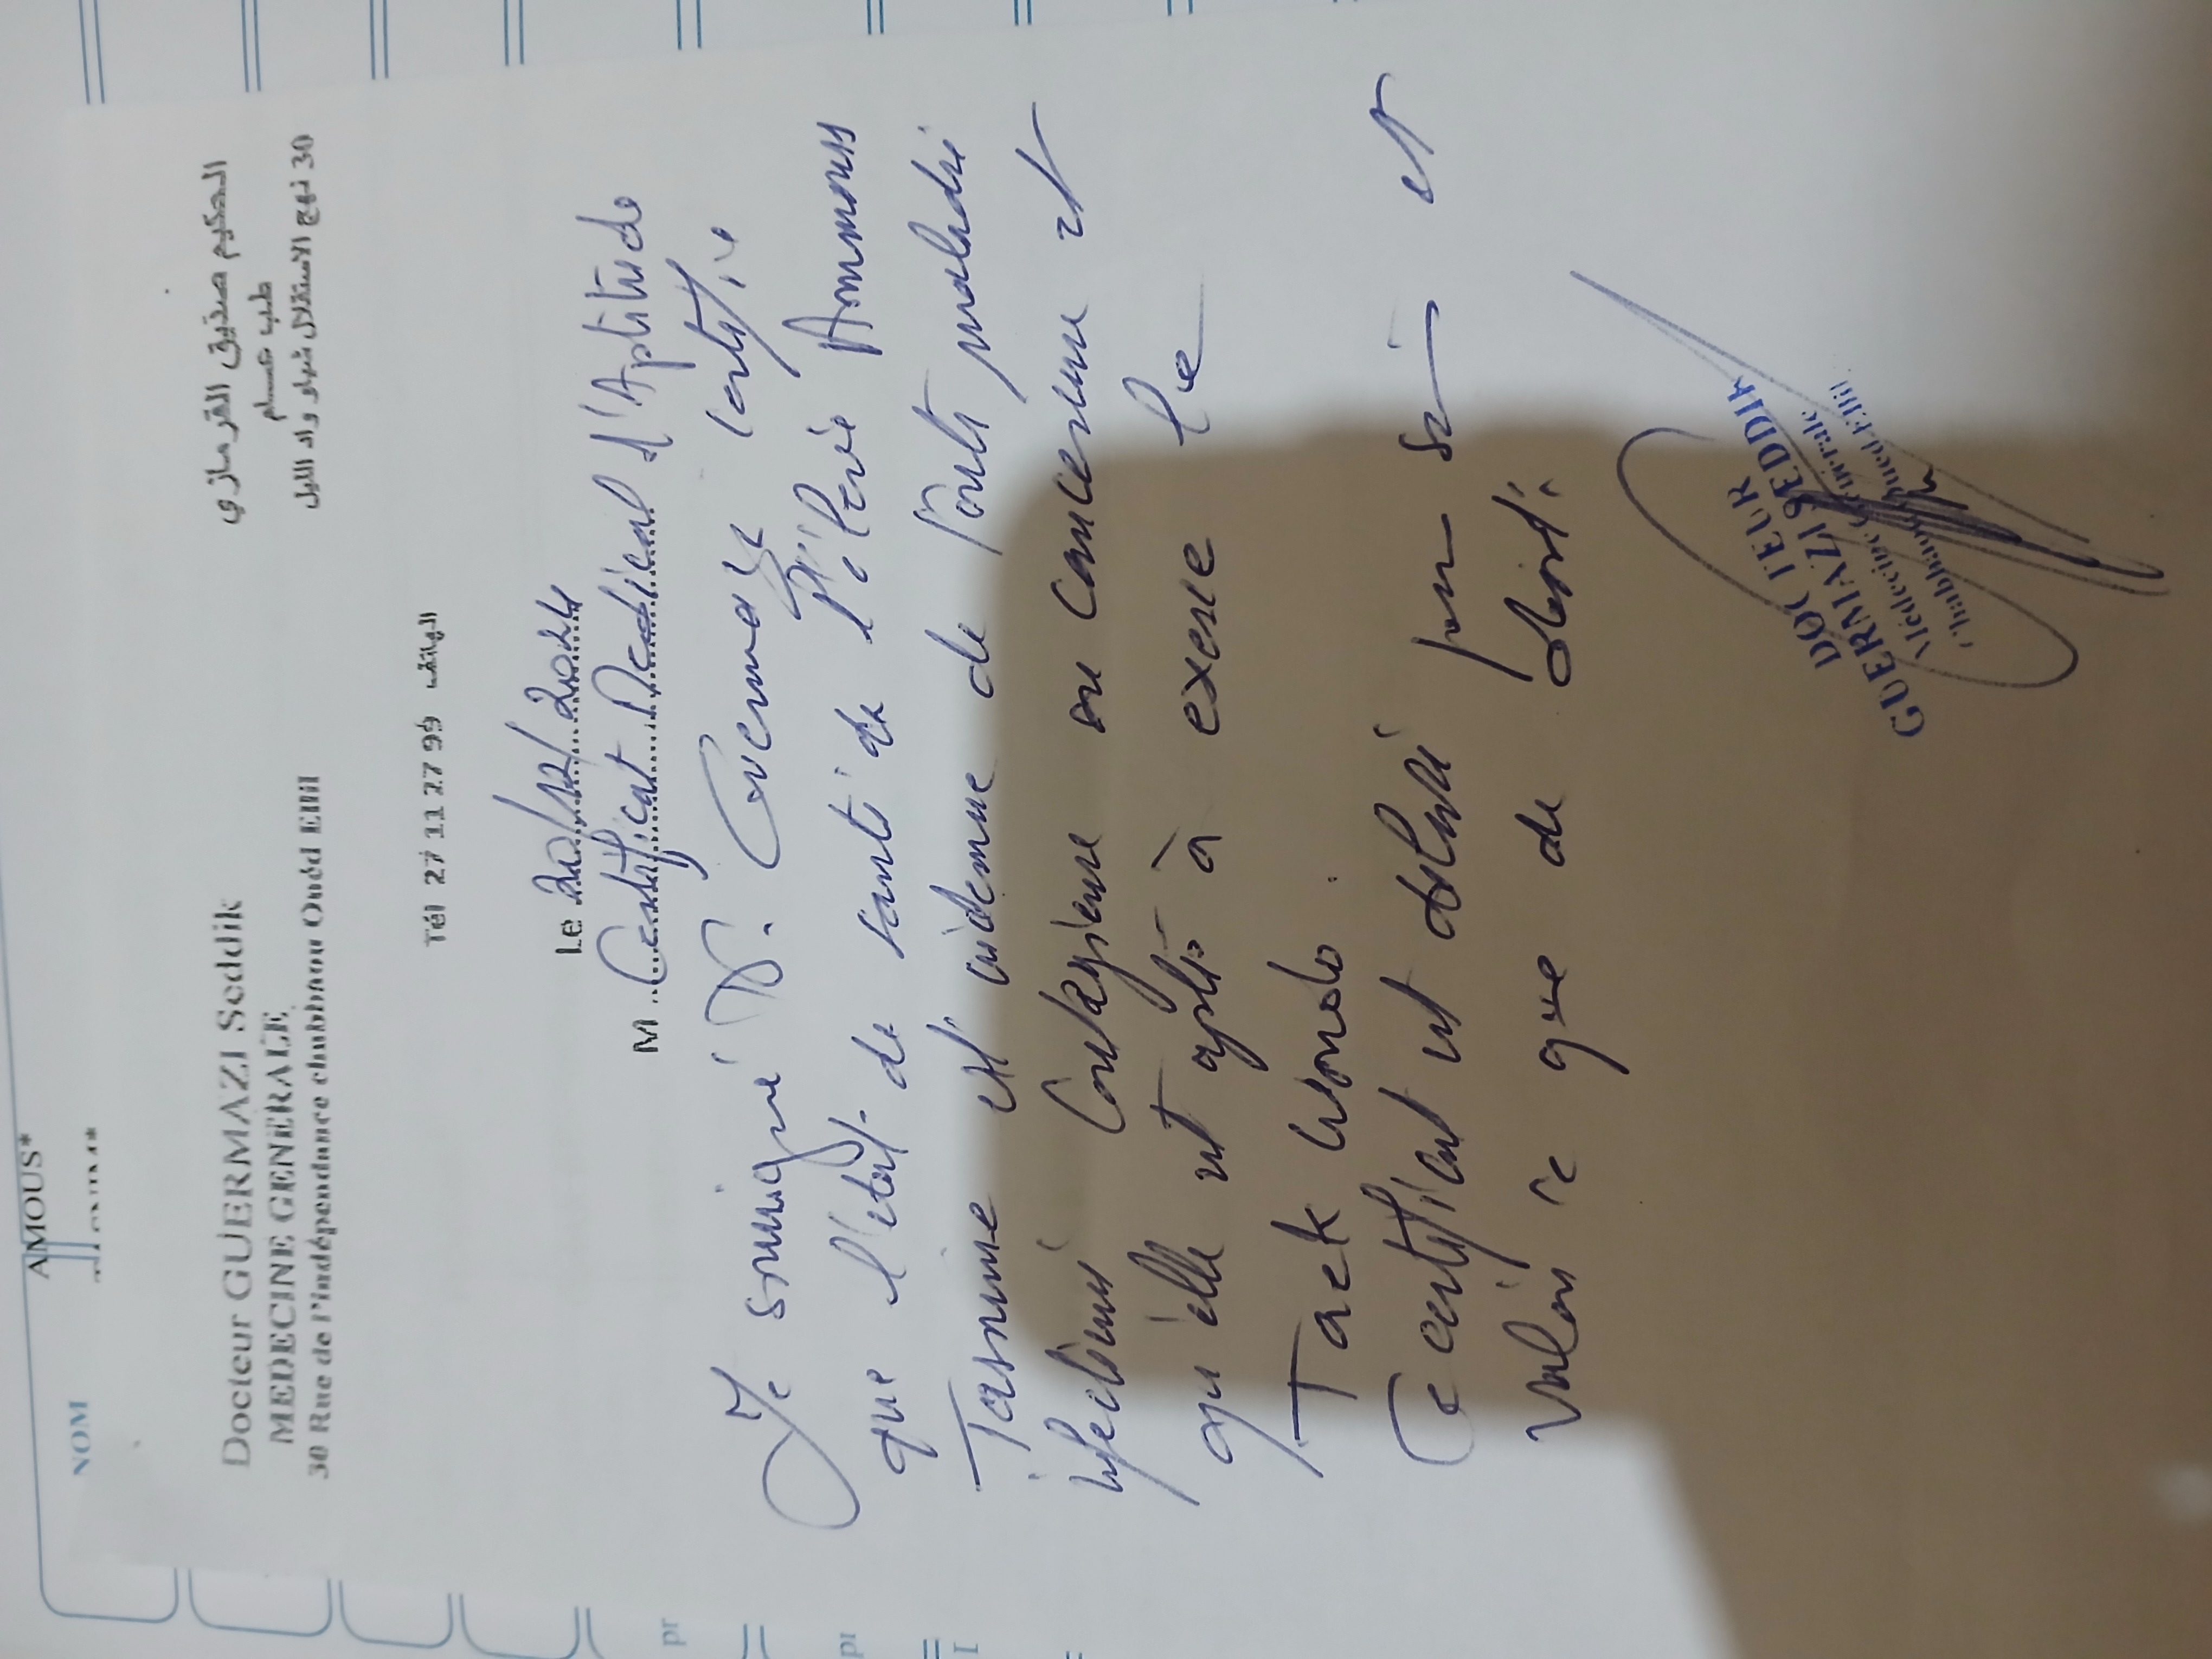 AMOUS*
NOM
Docteur GUERMAZI Seddik
MEDECINE GENERALE
30 Rue de l'indépendance chabbaou Ouéd Ellil
الحكيم صديق القرمازي
طب عام
30 نهج الاستقلال شباو واد الليل
Tél 27 11 27 99 الهاتف
Le 20/12/2024
M Certificat Medical d'Aptitude
Je soussigné Dr. Guermazi Certifie
que l'etat de santé de l'élevé Ammous
Tasnime est indemne de toute maladie
infectieuse contagieuse ou cancereuse et
qu'elle est apte à exercer le
Taek wondo.
Ce certificat est delivré pour servir et
valoir ce que de droit.
DOCTEUR
GUERMAZI SEDDIK
Médecine Générale
Chabbaou Oued Ellil